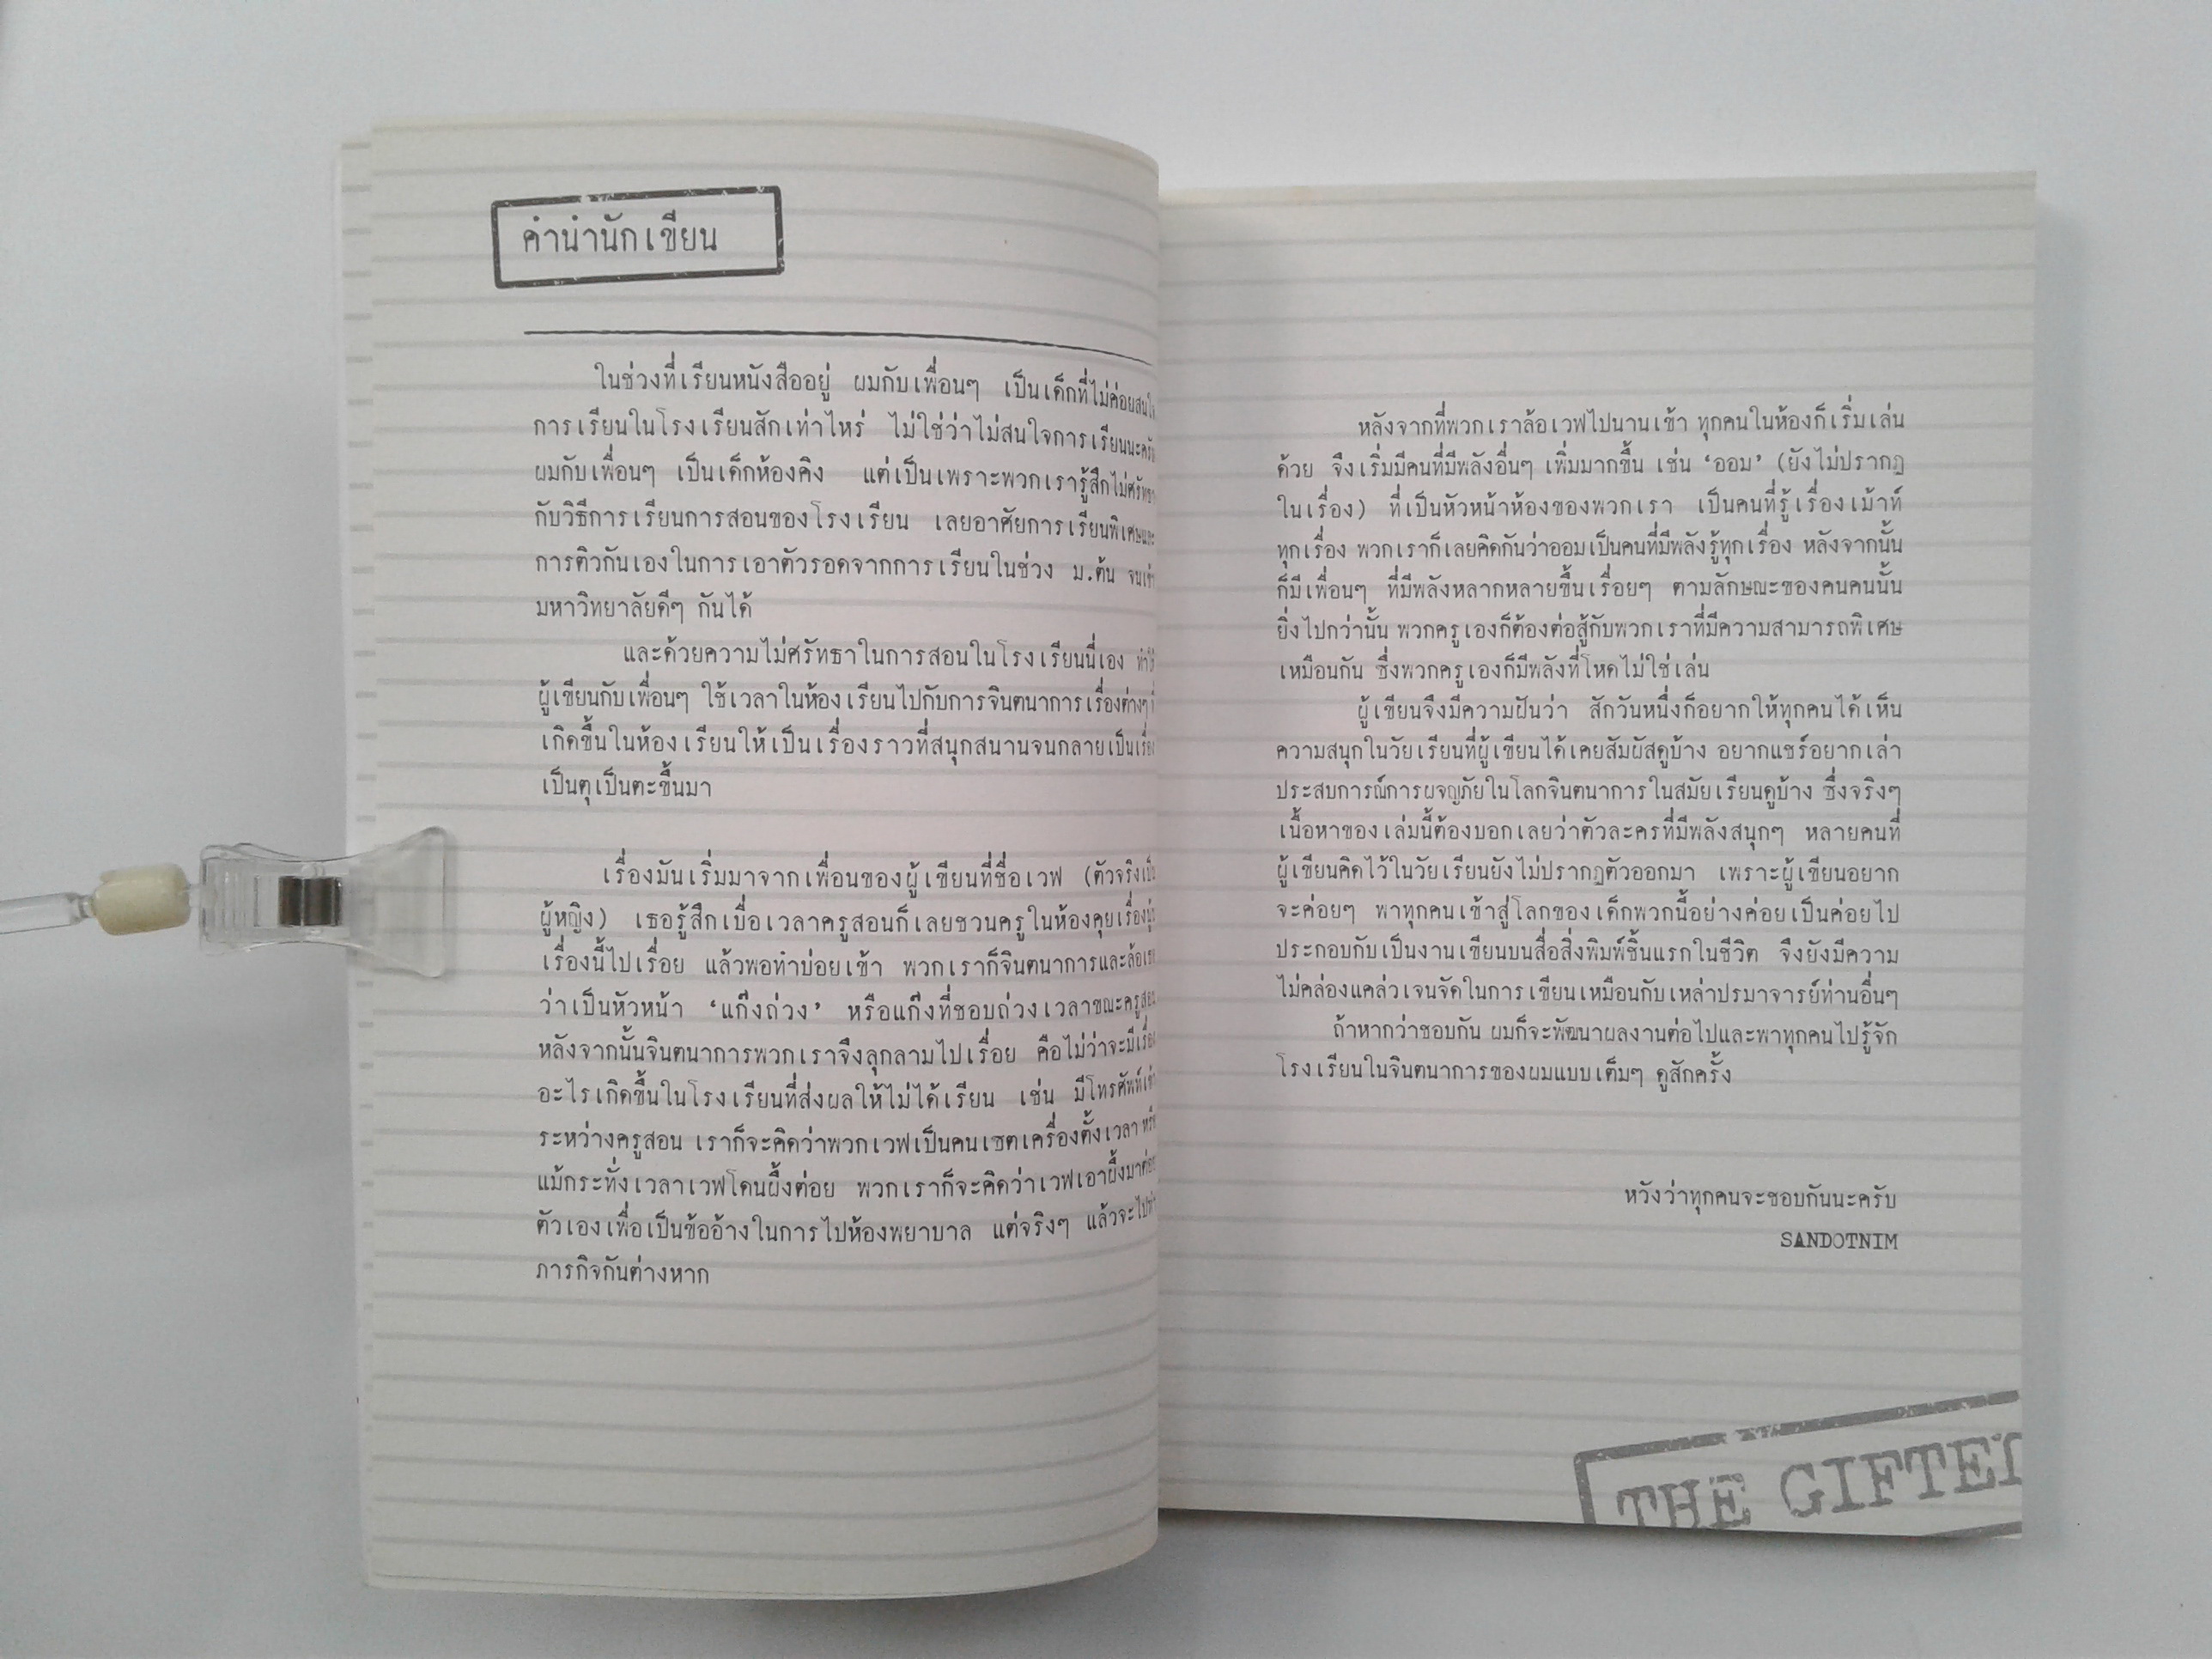 คำนำนักเขียน
ในช่วงที่เรียนหนังสืออยู่ ผมกับเพื่อนๆ เป็นเด็กที่ไม่ค่อยสนใจ
การเรียนในโรงเรียนสักเท่าไหร่ ไม่ใช่ว่าไม่สนใจการเรียนนะครับ
ผมกับเพื่อนๆ เป็นเด็กห้องคิง แต่เป็นเพราะพวกเรารู้สึกไม่ศรัทธา
กับวิธีการเรียนการสอนของโรงเรียน เลยอาศัยการเรียนพิเศษและ
การติวกันเองในการเอาตัวรอดจากการเรียนในช่วง ม.ต้น จนเข้า
มหาวิทยาลัยดีๆ กันได้
และด้วยความไม่ศรัทธาในการสอนในโรงเรียนนี่เอง ทำให้
ผู้เขียนกับเพื่อนๆ ใช้เวลาในห้องเรียนไปกับการจินตนาการเรื่องต่างๆ ที่
เกิดขึ้นในห้องเรียนให้เป็นเรื่องราวที่สนุกสนานจนกลายเป็นเรื่อง
เป็นตุเป็นตะขึ้นมา
เรื่องมันเริ่มมาจากเพื่อนของผู้เขียนที่ชื่อเวฟ (ตัวจริงเป็น
ผู้หญิง) เธอรู้สึกเบื่อเวลาครูสอนก็เลยชวนครูในห้องคุยเรื่องนู้น
เรื่องนี้ไปเรื่อย แล้วพอทำบ่อยเข้า พวกเราก็จินตนาการและล้อเธอ
ว่าเป็นหัวหน้า ‘แก๊งถ่วง’ หรือแก๊งที่ชอบถ่วงเวลาขณะครูสอน
หลังจากนั้นจินตนาการพวกเราจึงลุกลามไปเรื่อย คือไม่ว่าจะมีเรื่อง
อะไรเกิดขึ้นในโรงเรียนที่ส่งผลให้ไม่ได้เรียน เช่น มีโทรศัพท์เข้า
ระหว่างครูสอน เราก็จะคิดว่าพวกเวฟเป็นคนเซตเครื่องตั้งเวลา หรือ
แม้กระทั่งเวลาเวฟโดนผึ้งต่อย พวกเราก็จะคิดว่าเวฟเอาผึ้งมาต่อย
ตัวเองเพื่อเป็นข้ออ้างในการไปห้องพยาบาล แต่จริงๆ แล้วจะไปทำ
ภารกิจกันต่างหาก
หลังจากที่พวกเราล้อเวฟไปนานเข้า ทุกคนในห้องก็เริ่มเล่น
ด้วย จึงเริ่มมีคนที่มีพลังอื่นๆ เพิ่มมากขึ้น เช่น ‘ออม’ (ยังไม่ปรากฏ
ในเรื่อง) ที่เป็นหัวหน้าห้องของพวกเรา เป็นคนที่รู้เรื่องเม้าท์
ทุกเรื่อง พวกเราก็เลยคิดกันว่าออมเป็นคนที่มีพลังรู้ทุกเรื่อง หลังจากนั้น
ก็มีเพื่อนๆ ที่มีพลังหลากหลายขึ้นเรื่อยๆ ตามลักษณะของคนคนนั้น
ยิ่งไปกว่านั้น พวกครูเองก็ต้องต่อสู้กับพวกเราที่มีความสามารถพิเศษ
เหมือนกัน ซึ่งพวกครูเองก็มีพลังที่โหดไม่ใช่เล่น
ผู้เขียนจึงมีความฝันว่า สักวันหนึ่งก็อยากให้ทุกคนได้เห็น
ความสนุกในวัยเรียนที่ผู้เขียนได้เคยสัมผัสดูบ้าง อยากแชร์อยากเล่า
ประสบการณ์การผจญภัยในโลกจินตนาการในสมัยเรียนดูบ้าง ซึ่งจริงๆ
เนื้อหาของเล่มนี้ต้องบอกเลยว่าตัวละครที่มีพลังสนุกๆ หลายคนที่
ผู้เขียนคิดไว้ในวัยเรียนยังไม่ปรากฏตัวออกมา เพราะผู้เขียนอยาก
จะค่อยๆ พาทุกคนเข้าสู่โลกของเด็กพวกนี้อย่างค่อยเป็นค่อยไป
ประกอบกับเป็นงานเขียนบนสื่อสิ่งพิมพ์ชิ้นแรกในชีวิต จึงยังมีความ
ไม่คล่องแคล่วเจนจัดในการเขียนเหมือนกับเหล่าปรมาจารย์ท่านอื่นๆ
ถ้าหากว่าชอบกัน ผมก็จะพัฒนาผลงานต่อไปและพาทุกคนไปรู้จัก
โรงเรียนในจินตนาการของผมแบบเต็มๆ ดูสักครั้ง
หวังว่าทุกคนจะชอบกันนะครับ
SANDOTNIM
THE GIFTED